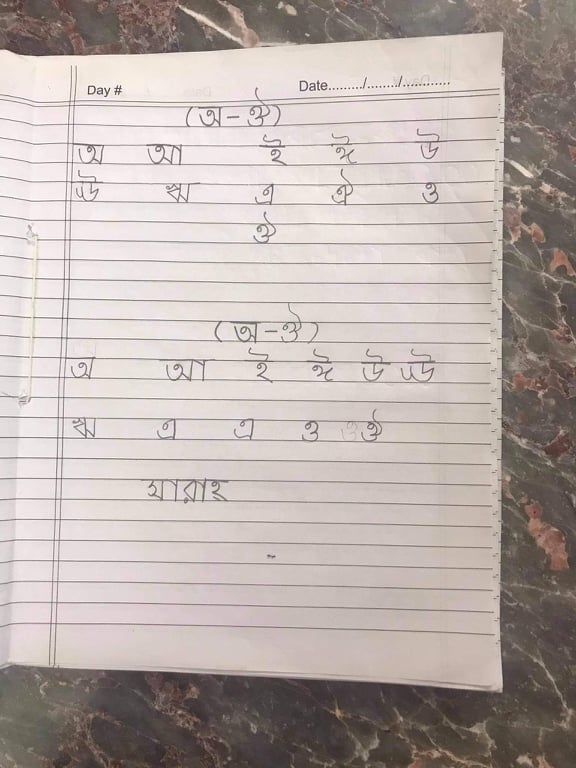 Day #
Date........./......../............
(অ-ঔ)
অ আ ই ঈ উ
ঊ ঋ এ ঐ ও
ঔ
(অ-ঔ)
অ আ ই ঈ উ ঊ
ঋ এ এ ও ঔ